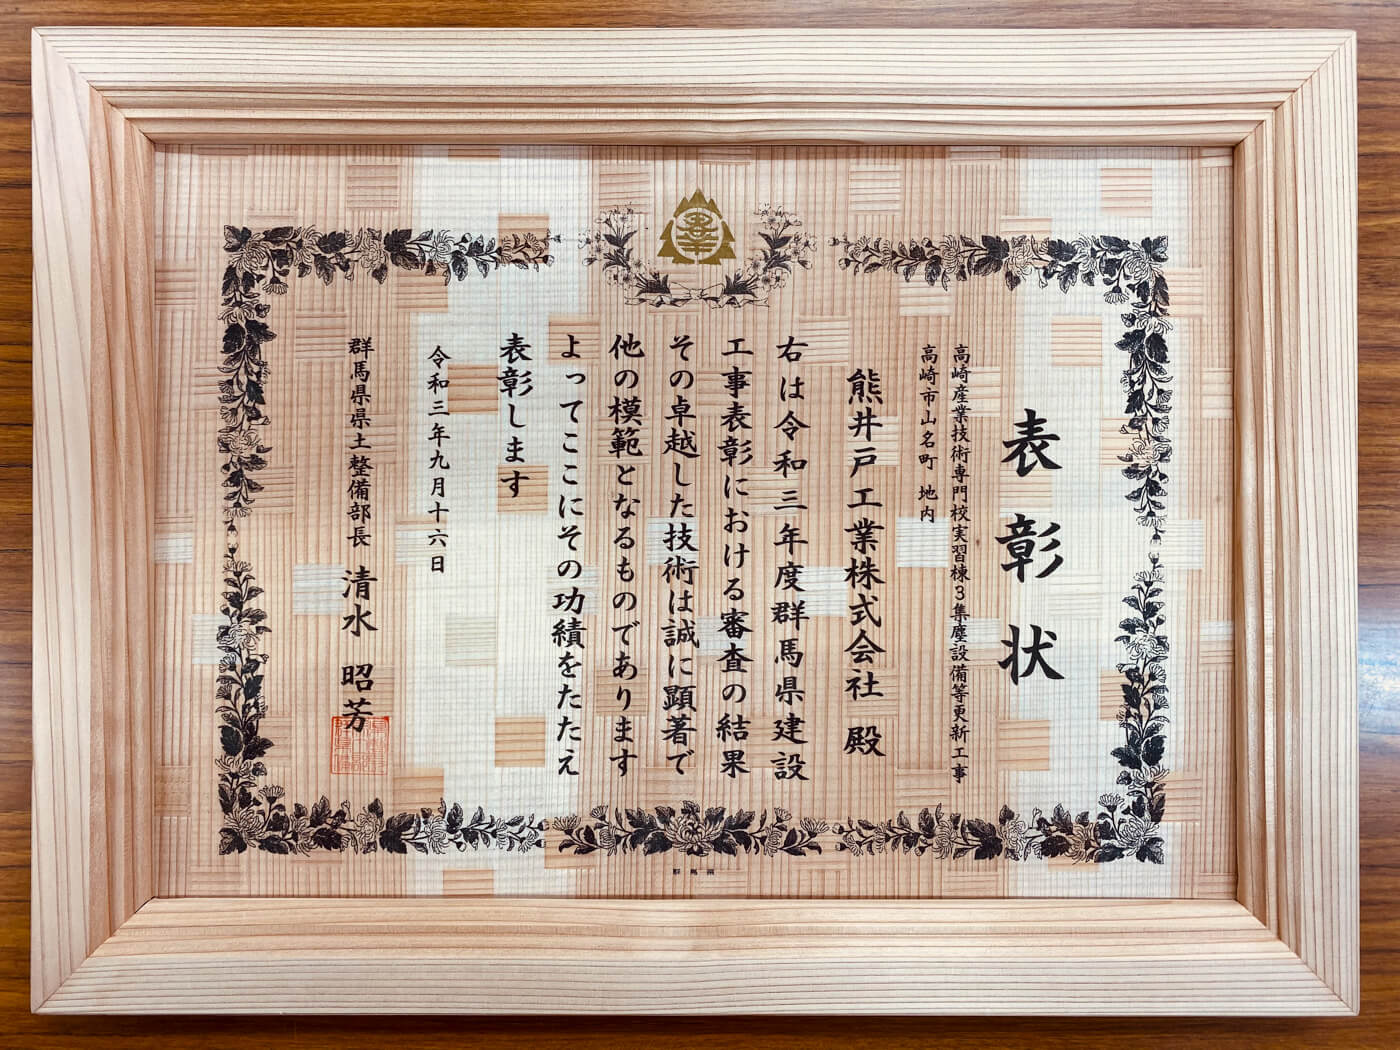 表彰状
高崎産業技術専門校実習棟3集塵設備等更新工事
高崎市山名町 地内
熊井戸工業株式会社 殿
右は令和三年度群馬県建設
工事表彰における審査の結果
その卓越した技術は誠に顕著で
他の模範となるものであります
よってここにその功績をたたえ
表彰します
令和三年九月十六日
群馬県県土整備部長 清水 昭芳
群馬県